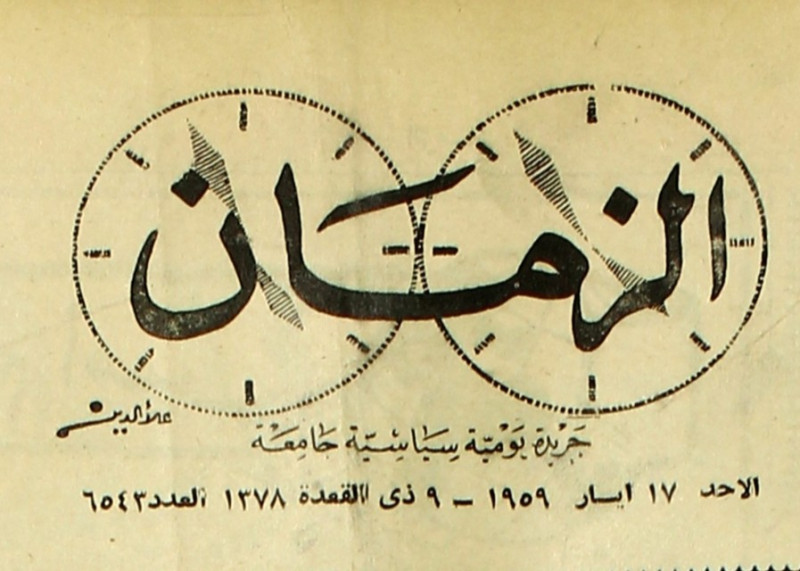 الزمان
علاءالدين
جَريْدة يَوميّة سِيَاسْيّة جَامِعَة
الاحد ١٧ ايـار ١٩٥٩ – ٩ ذى القعدة ١٣٧٨ العدد ٦٥٤٣